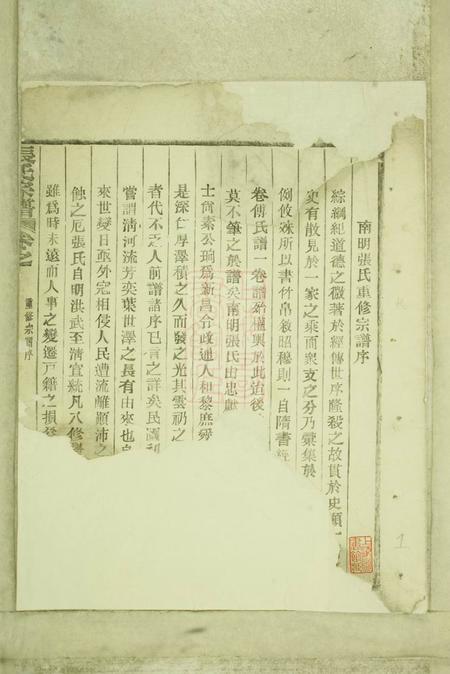 南明張氏重修宗譜序
綜綱紀道德之微著於經傳世序隆殺之故貫於史顧
史有散見於一家之乘而眾支之分乃彙集裝
例攸殊所以書竹帛敘昭穆則一自隋書經
卷傅氏譜一卷譜殆權輿於此迨後
莫不筆之於譜矣南明張氏由忠獻
士尚素公珦為新昌令政通人和黎庶
是深仁厚澤積之久而發之光其雲礽之
者代不乏人前譜諸序已言之詳矣民國
嘗謂清河流芳奕葉世澤之長有由來也
來世變日亟外寇相侵人民遭流離顛沛之
蝕之厄張氏自明洪武至清宣統凡八修
雖為時未遠而人事之變遷戸籍之損
張氏宗譜 卷之
重修宗譜序
1